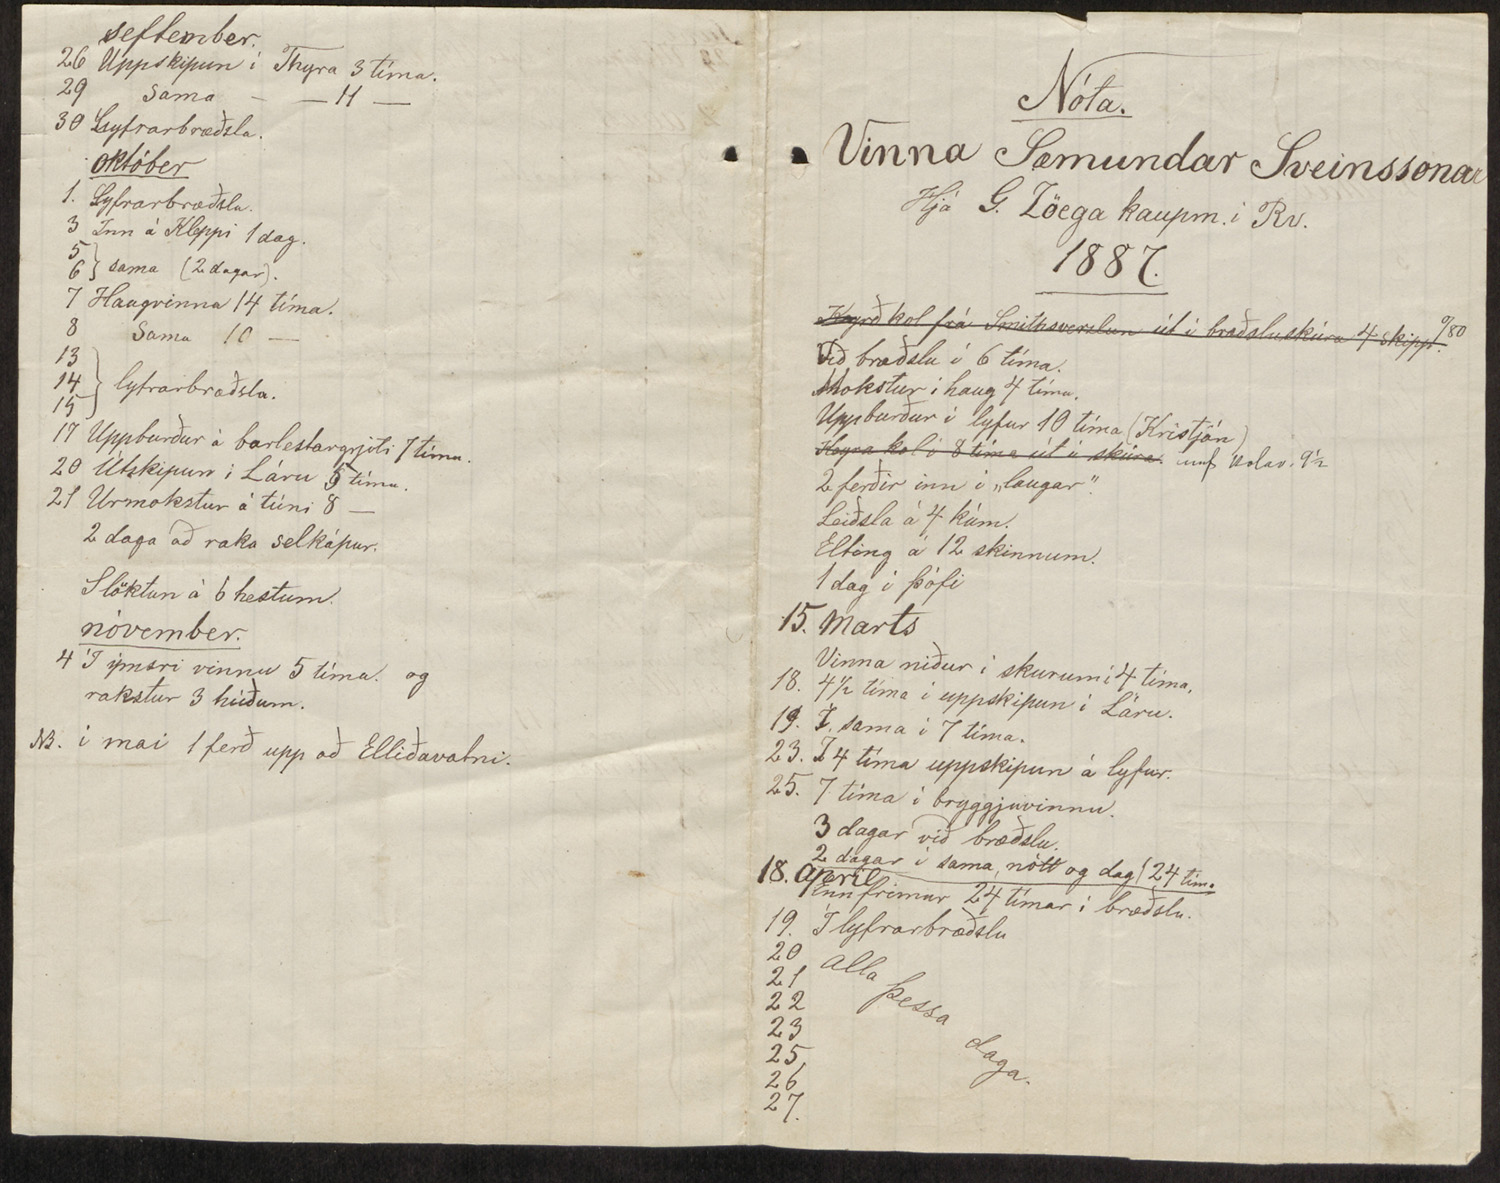 september.
26 Uppskipun í Thyra 3 tíma.
29 Sama — — 11 —
30 Lyfrarbræðsla.
október
1. Lyfrarbræðsla.
3 Inn á Kleppi 1 dag.
5
6 } sama (2 dagar).
7 Haugvinna 14 tíma.
8 Sama 10 —
13
14 } lyfrarbræðsla.
15
17 Uppburður á barlestargrjóti 7 tíma.
20 Útskipun í Láru 5 tíma.
21 Urmokstur á túni 8 —
2 daga að raka selkápur.
Slöktun á 6 hestum.
nóvember.
4 Í ýmsri vinnu 5 tíma. og
rakstur 3 húðum.
NB. í mai 1 ferð upp að Elliðavatni.
Nóta.
Vinna Sæmundar Sveinssonar
Hjá G. Zöega kaupm. í Rv.
1887.
Keyrð kol frá Smithsverslun út í bræðsluskúra 4 skipp. 0/80
Við bræðslu í 6 tíma.
Mokstur í haug 4 tíma.
Uppburður í lyfur 10 tíma (Kristján)
Keyra kol í 8 tíma út í skúra. 9½
2 ferðir inn í „laugar".
Leiðsla á 4 kúm.
Elting á 12 skinnum.
1 dag í þófi
15. Marts
Vinna niður í skurum í 4 tíma.
18. 4½ tíma í uppskipun í Láru.
19. Í sama í 7 tíma.
23. Í 4 tíma uppskipun á lyfur.
25. 7 tíma í bryggjuvinnu.
3 dagar við bræðslu.
2 dagar í sama, nótt og dag (24 tím.
18. apríl
Ennfrimur 24 tímar í bræðslu.
19. Í lyfrarbræðslu
20 alla
21 þessa
22 daga.
23
25
26
27.